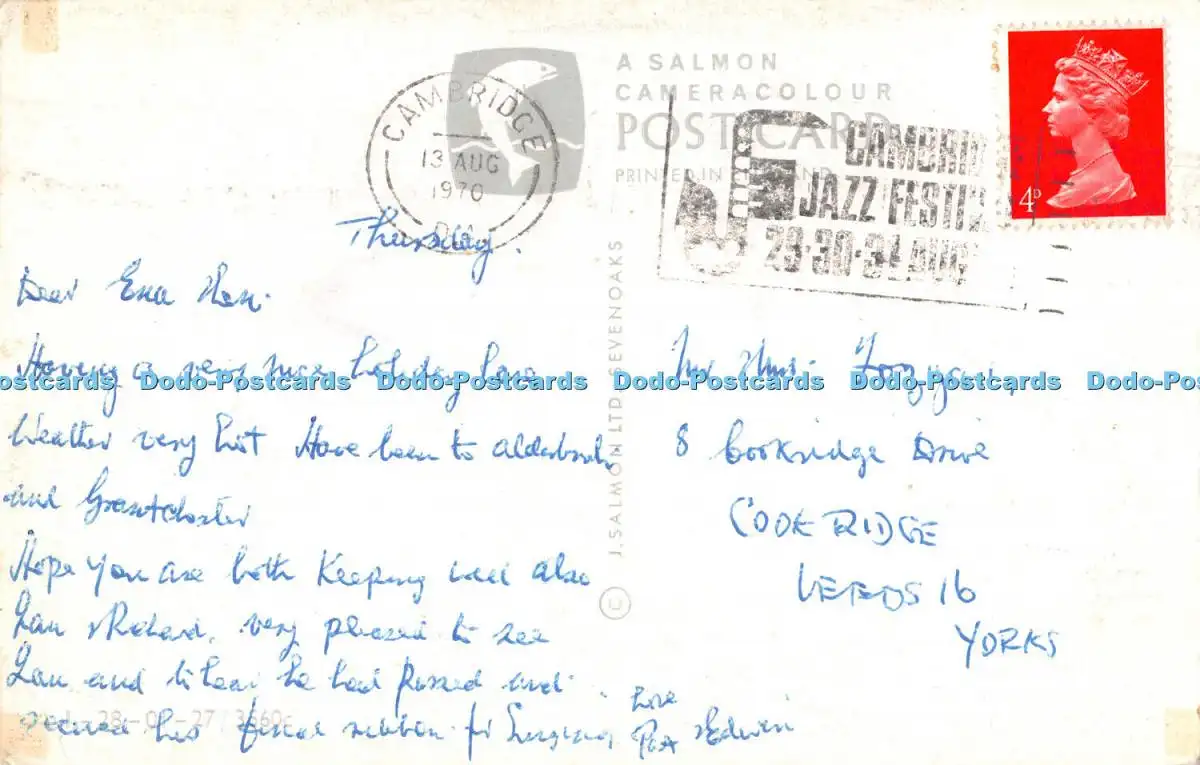 A SALMON
CAMERACOLOUR
POST CARD
PRINTED IN ENGLAND
CAMBRIDGE
13 AUG
1970
CAMBRID
JAZZ FESTIV
29·30·31 AUG
4P
Thursday.
Dear Ena
Having a very nice holiday
Weather very hot Have been to
and
Hope you are both keeping well also
Ian &Richard, very pleased to see
Ian and to hear he had passed and
secured his ribbon for
Love
&Edwin
Mr &Mrs.
8 Cookridge Drive
COOKRIDGE
LEEDS 16
YORKS
© J. SALMON LTD. SEVENOAKS
Dodo-Postcards Dodo-Postcards Dodo-Postcards Dodo-Postcards Dodo-Postcards